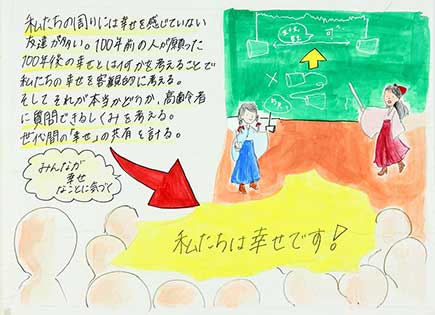 私たちの周りには幸せを感じていない
友達が多い。100年前の人が願った
100年後の幸せとは何かを考えることで
私たちの幸せを客観的に考える。
そしてそれが本当かどうか、高齢者
に質問できるしくみを考える。
世代間の「幸せ」の共有を計る。
みんなが
幸せ
なことに気づく
私たちは幸せです!